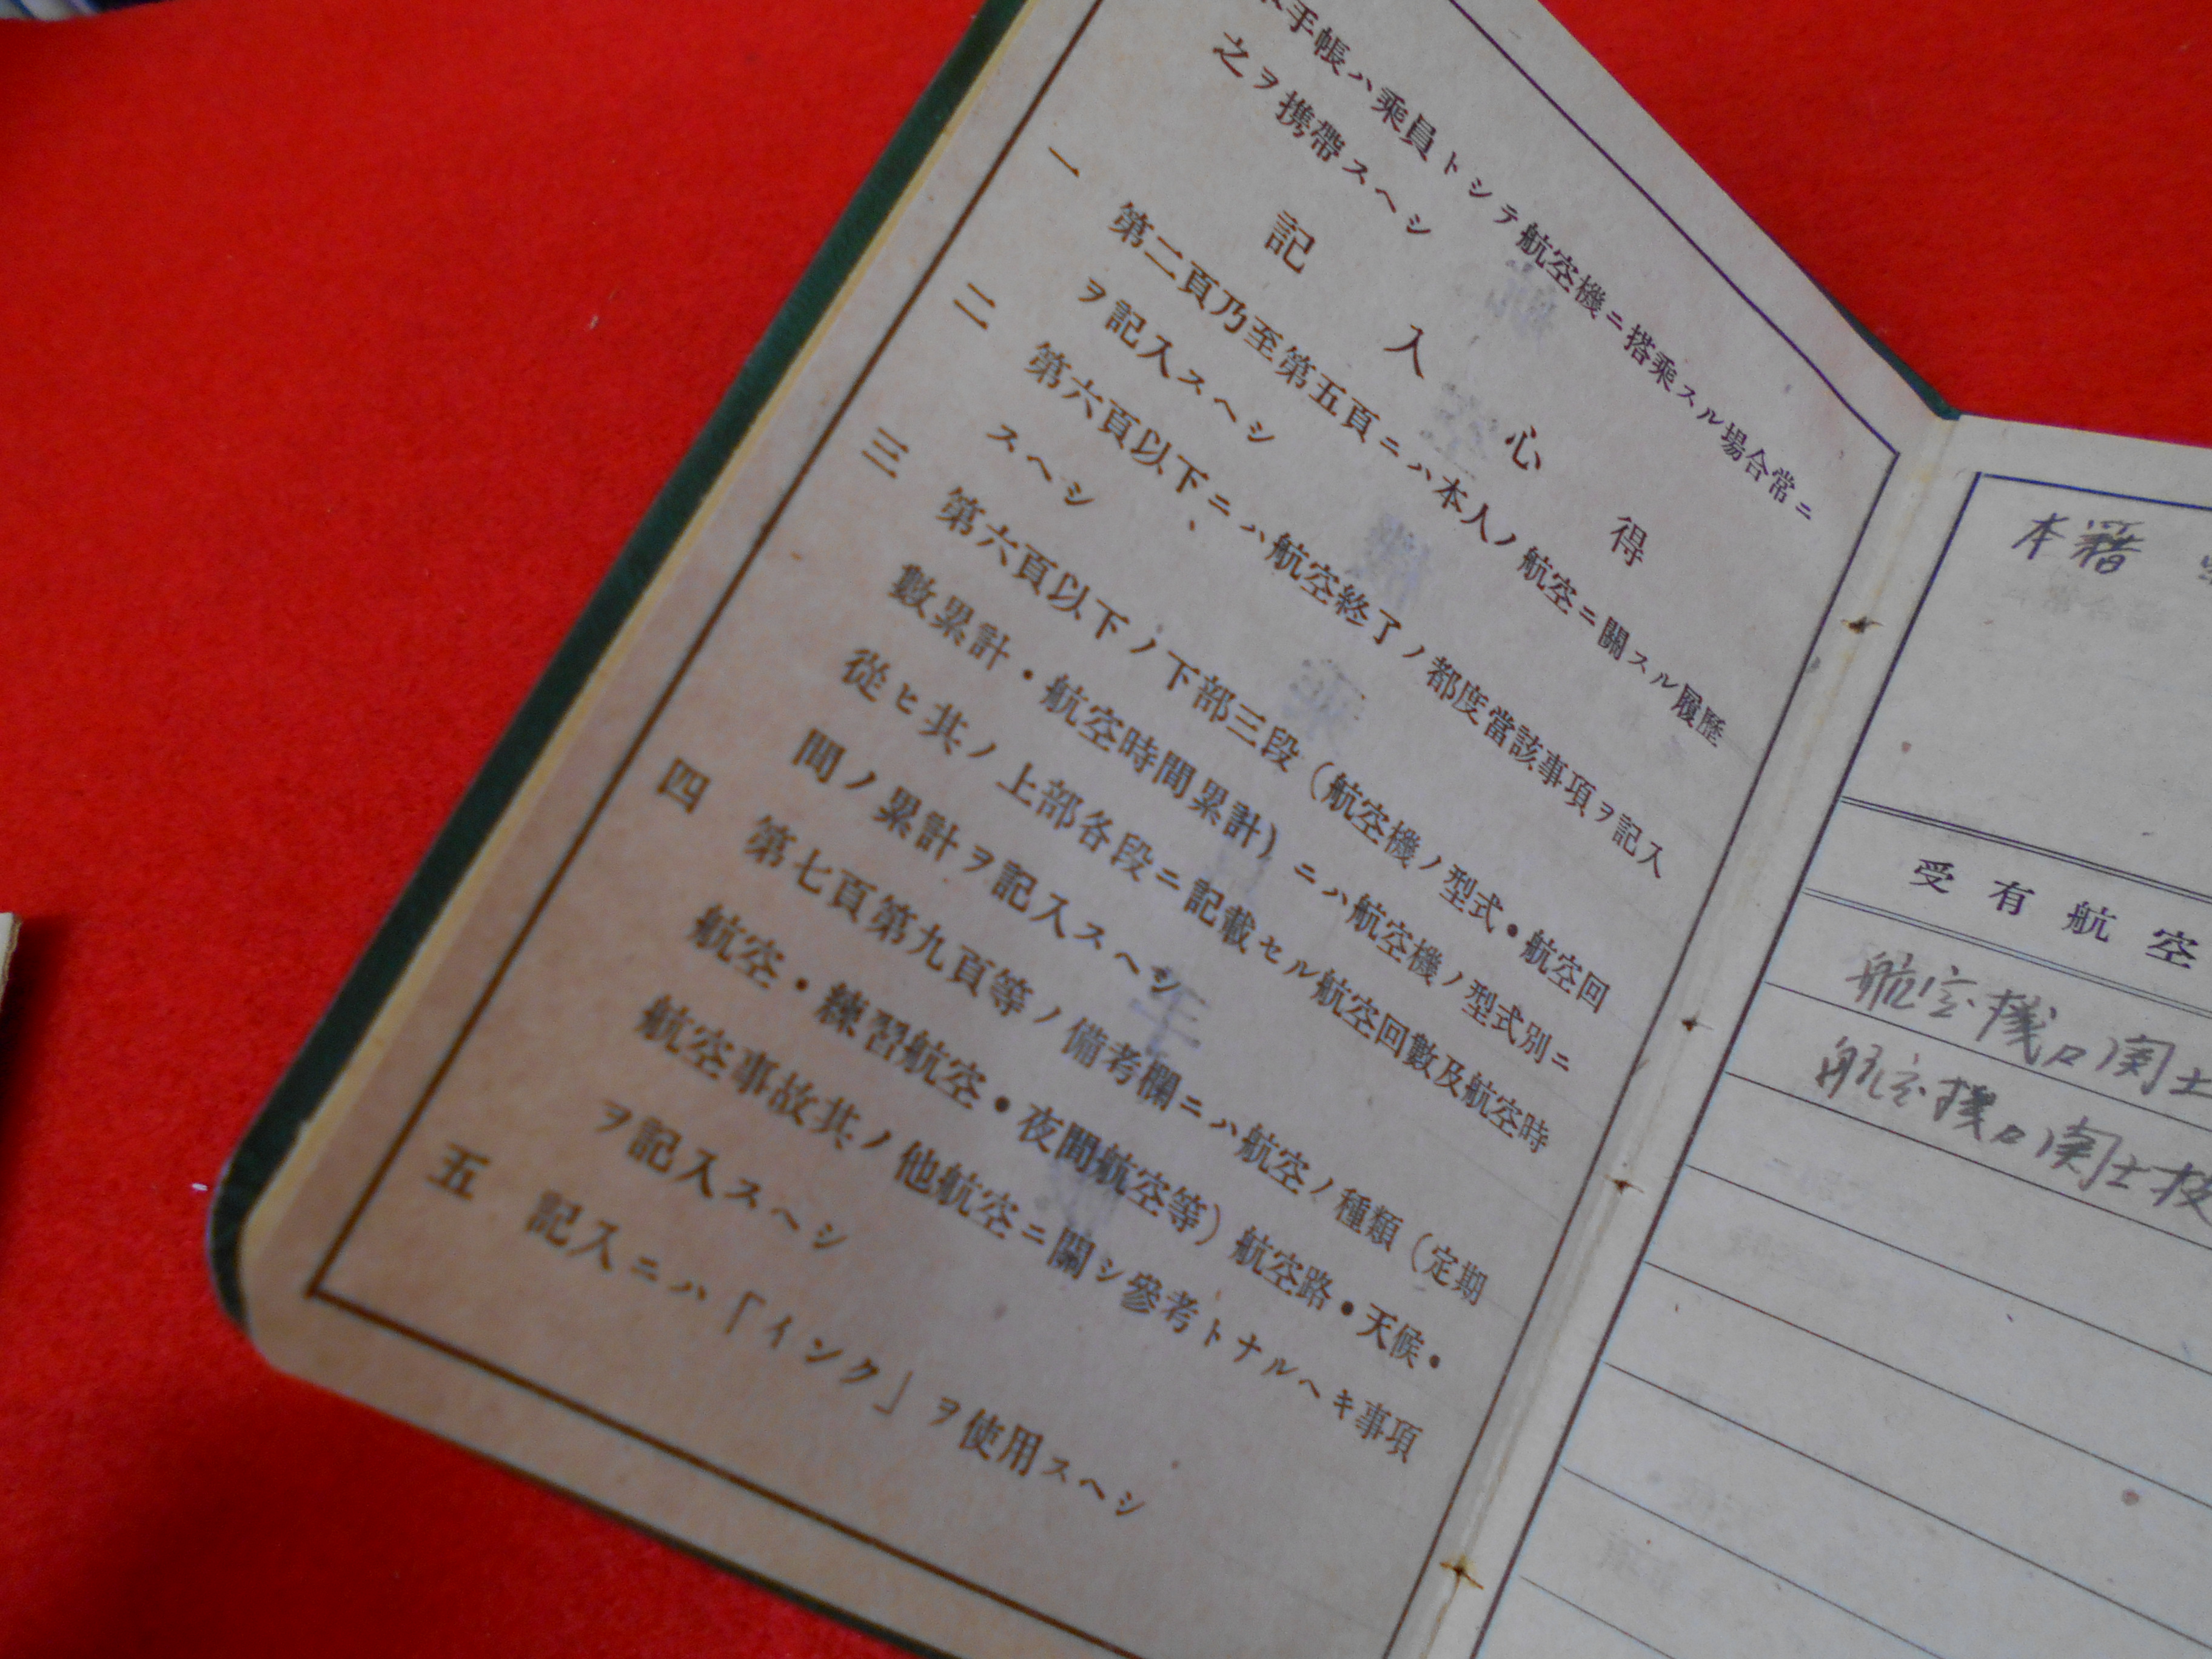 本手帳ハ乘員トシテ航空機ニ搭乘スル場合常ニ
之ヲ携帶スヘシ
記入心得
一 第二頁乃至第五頁ニハ本人ノ航空ニ關スル履歷
ヲ記入スヘシ
二 第六頁以下ニハ航空終了ノ都度當該事項ヲ記入
スヘシ
三 第六頁以下ノ下部三段（航空機ノ型式・航空回
數累計・航空時間累計）ニハ航空機ノ型式別ニ
從ヒ其ノ上部各段ニ記載セル航空回數及航空時
間ノ累計ヲ記入スヘシ
四 第七頁第九頁等ノ備考欄ニハ航空ノ種類（定期
航空・練習航空・夜間航空等）航空路・天候・
航空事故其ノ他航空ニ關シ參考トナルヘキ事項
ヲ記入スヘシ
五 記入ニハ「インク」ヲ使用スヘシ
本籍
受有航空
航空機々関士
航空機々関士技